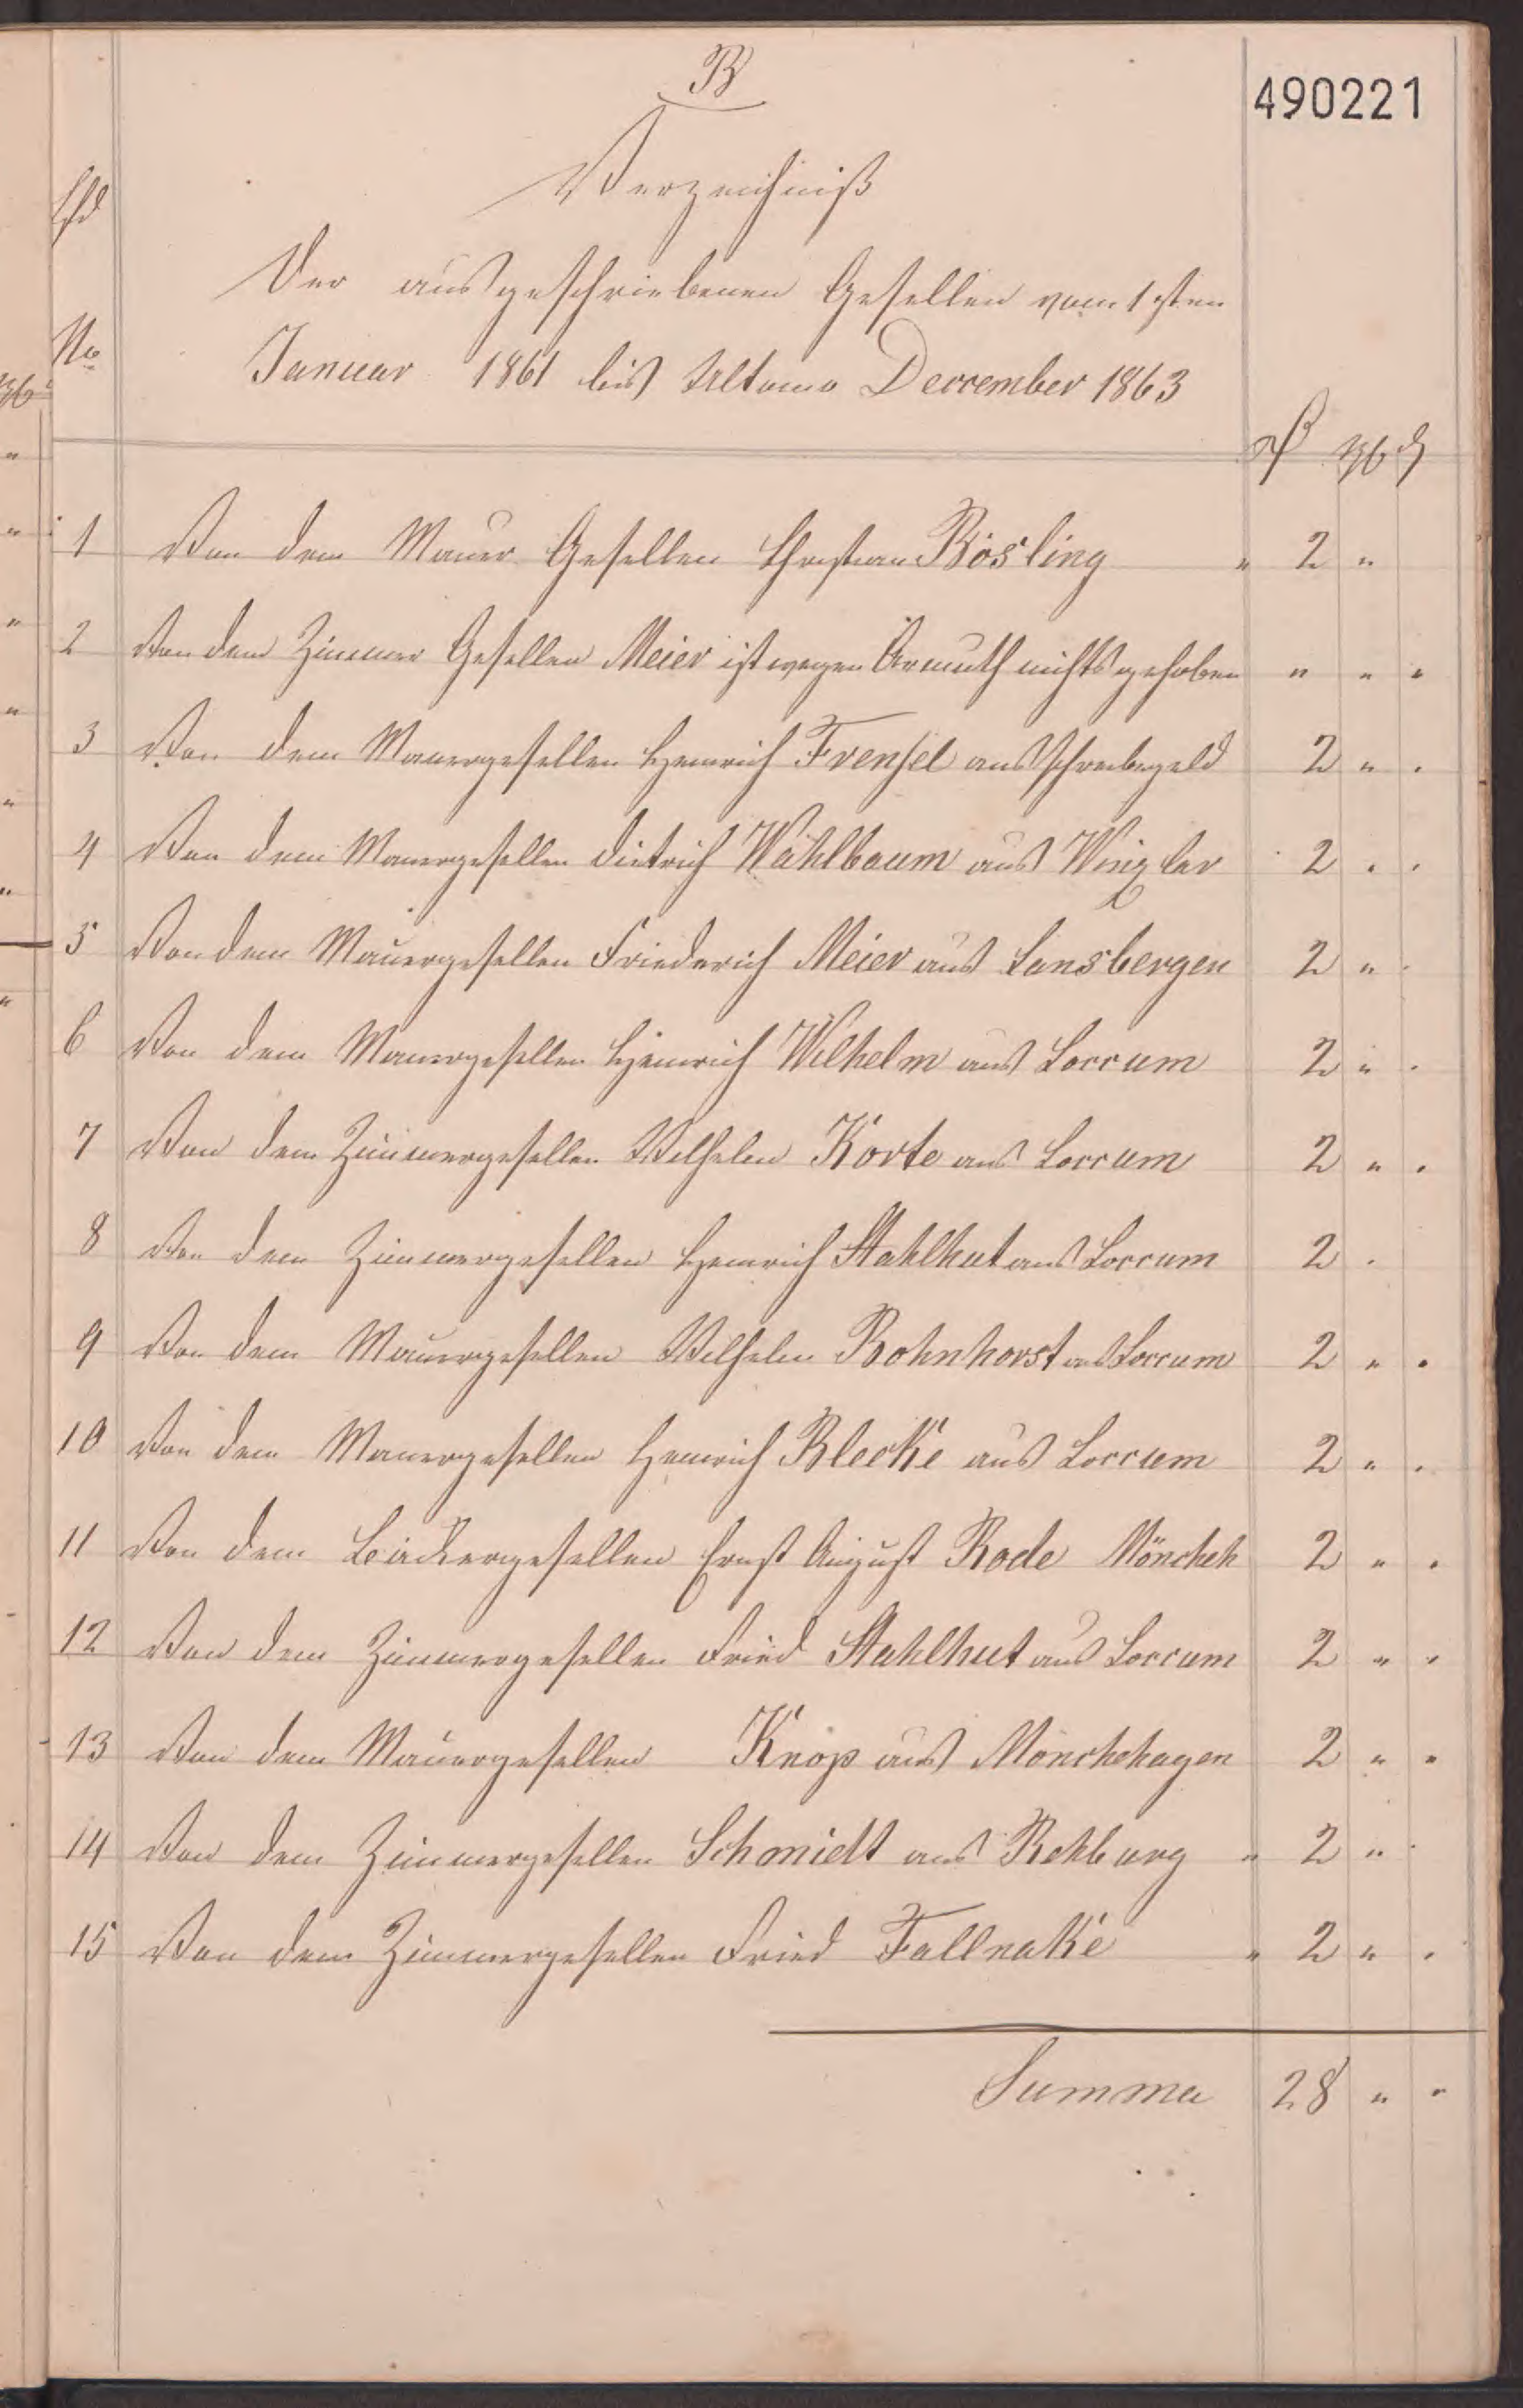 B
490221
Verzeichniß
Der ausgeschriebenen Gesellen vom 1sten
Januar 1861 bis Ultomo Dercember 1863
lfd
No
1 Von dem Mauer Gesellen Christian Bösling " 2 "
2 Von dem Zimmer Gesellen Meier ist wegen Armuth nichts gehoben " " "
3 Von dem Mauergesellen Heinrich Frensel ausschreibegeld 2 " "
4 Von dem Mauergesellen Dietrich Wahlbaum aus Winzlar 2 " "
5 Von dem Mauergesellen Friederich Meier aus Lansbergen 2 " "
6 Von dem Mauergesellen Heinrich Wilhelm aus Loccum 2 " "
7 Von dem Zimmergesellen Wilhelm Korte aus Loccum 2 " "
8 Von dem Zimmergesellen Heinrich Stahlhut aus Loccum 2 "
9 Von dem Mauergesellen Wilhelm Bohnhorst aus Loccum 2 " "
10 Von dem Mauergesellen Heinrich Blecke aus Loccum 2 " "
11 Von dem gesellen Ernst August Rode Möncheh 2 " "
12 Von dem Zimmergesellen Fried Stahlhut aus Loccum 2 " "
13 Von dem Mauergesellen Knop aus Mönchehagen 2 " "
14 Von dem Zimmergesellen Schmidt aus Rehburg " 2 "
15 Von dem Zimmergesellen Fried Fallnake " 2 " "
Summa 28 " "